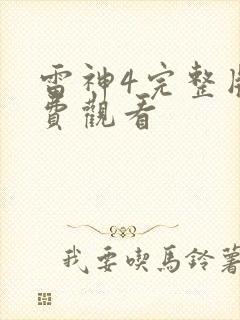 雷神4完整
費觀看
我要喫馬鈴薯